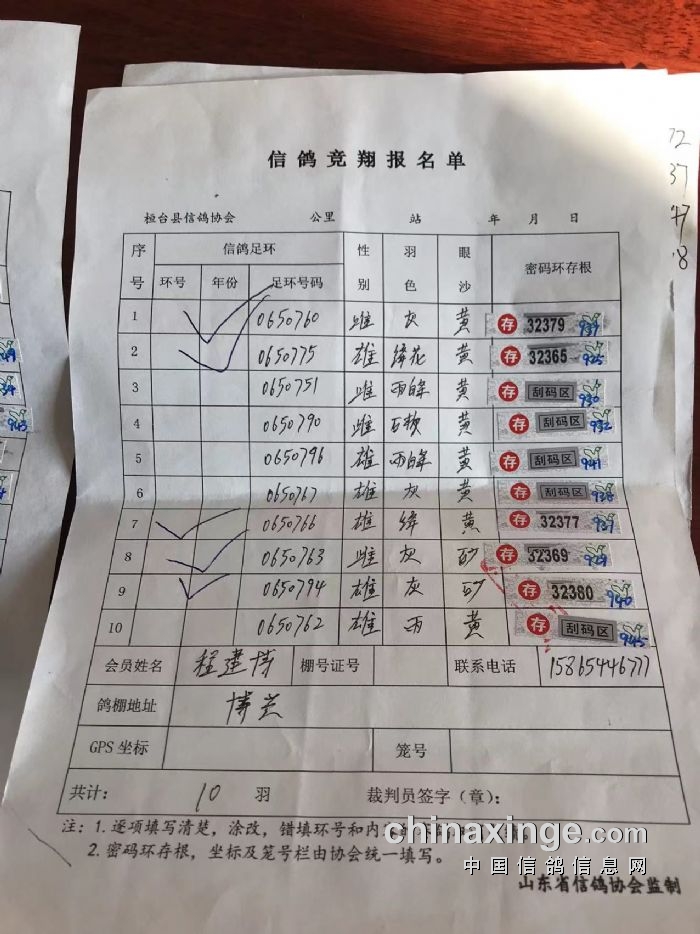 信鸽竞翔报名单
桓台县信鸽协会 公里 站 年 月 日
序号 信鸽足环 性别 羽色 眼沙 密码环存根
环号 年份 足环号码
1 0650760 雌 灰 黄 存 32379 937
2 0650775 雄 绛花 黄 存 32365 925
3 0650751 雌 雨白条 黄 存 刮码区 930
4 0650790 雌 黄 存 刮码区 932
5 0650796 雄 雨白条 黄 存 刮码区 941
6 0650767 雄 灰 黄 存 刮码区 938
7 0650766 雄 绛 黄 存 32377 937
8 0650763 雌 灰 砂 存 32369 929
9 0650794 雄 灰 砂 存 32380 940
10 0650762 雄 雨 黄 存 刮码区 945
会员姓名 程建博 棚号证号 联系电话 15865446777
鸽棚地址 博兴
GPS坐标 笼号
共计: 10 羽 裁判员签字(章):
注: 1. 逐项填写清楚，涂改，错填环号和内
2. 密码环存根，坐标及笼号栏由协会统一填写。
chinaxinge.com
中国信鸽信息网
山东省信鸽协会监制
72
37
47